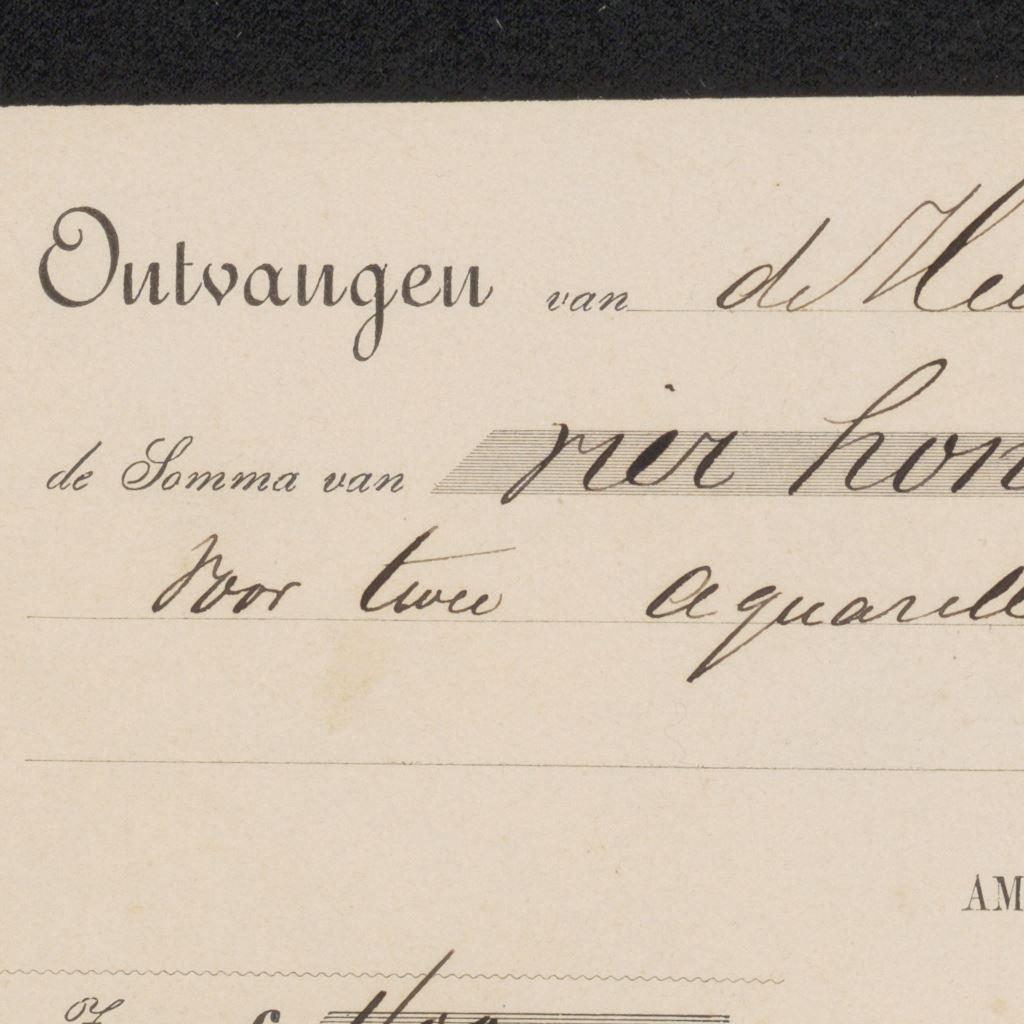 Ontvangen van de Hee
de Somma van vier hon
voor twee aquarell
AM